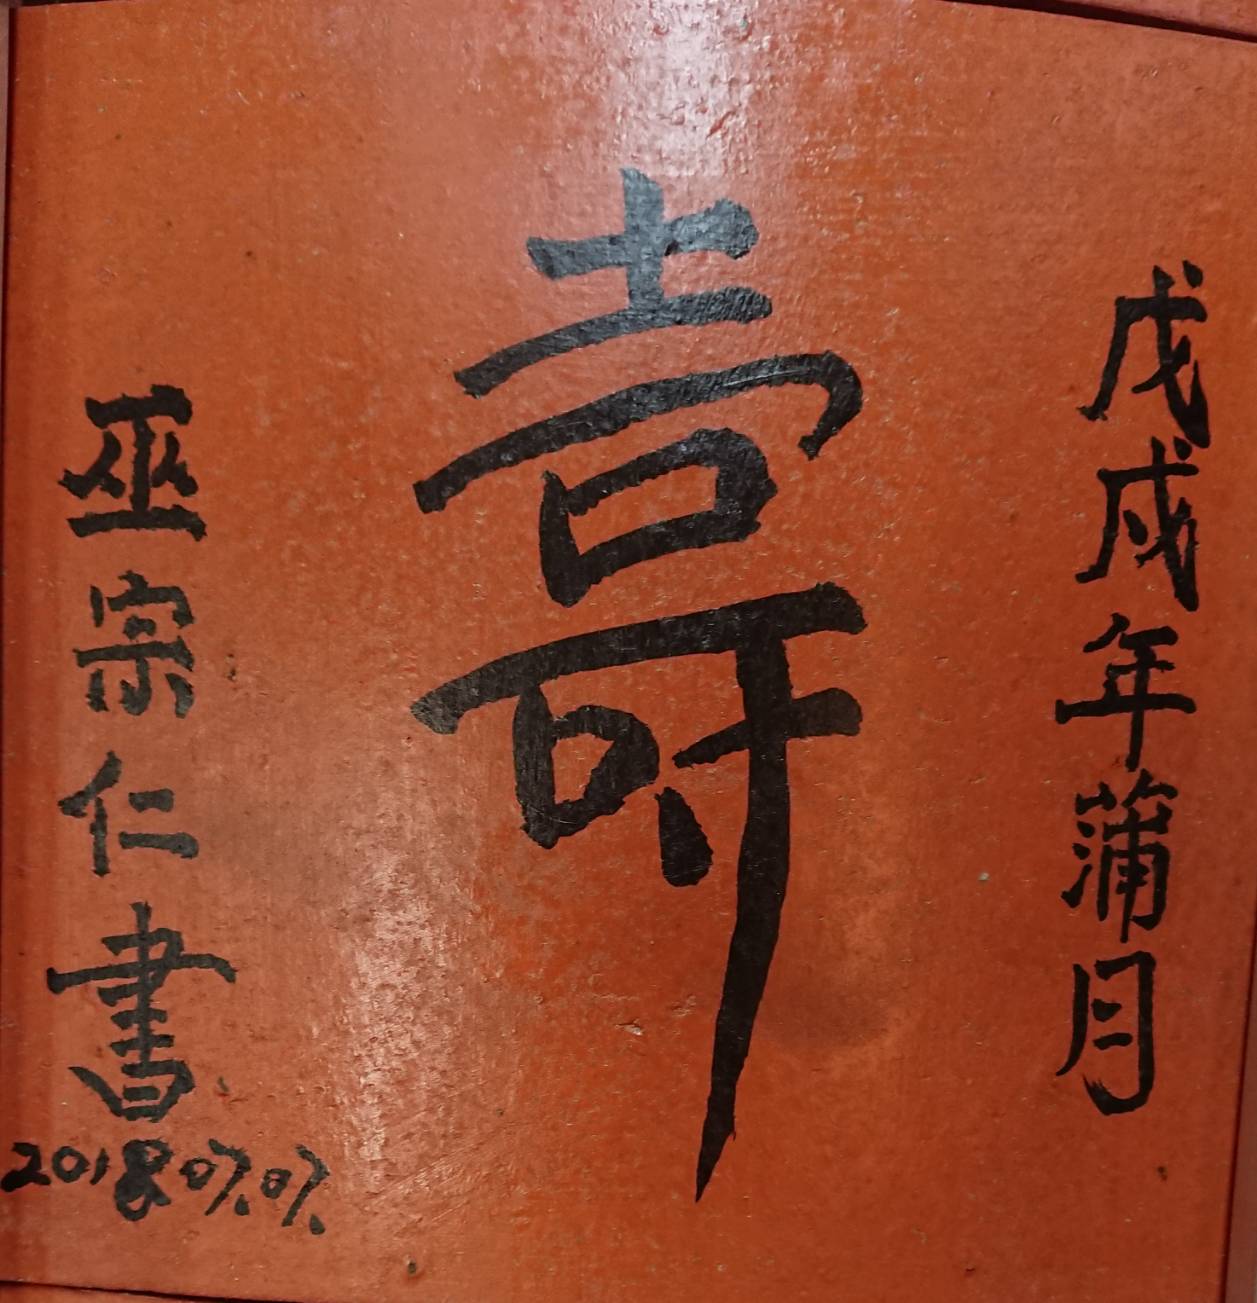 戊戌年蒲月
壽
巫宗仁書
2018.07.07.